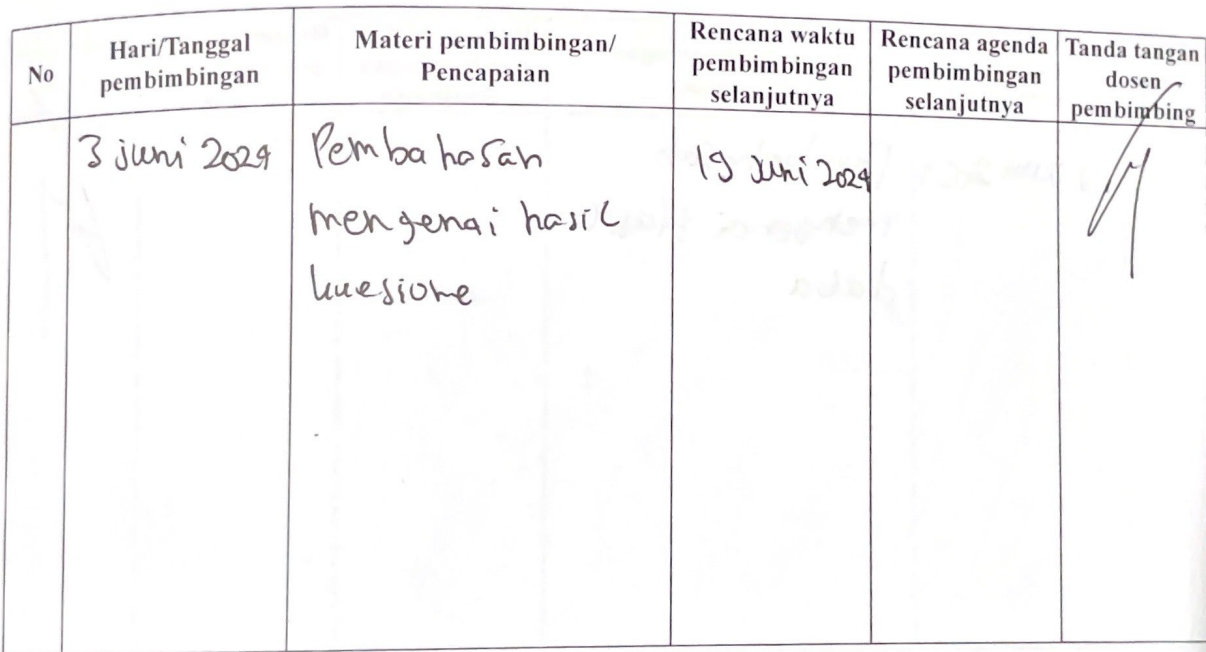 No
Hari/Tanggal
pembimbingan
Materi pembimbingan/
Pencapaian
Rencana waktu
pembimbingan
selanjutnya
Rencana agenda
pembimbingan
selanjutnya
Tanda tangan
dosen
pembimbing
3 juni 2024
Pembahasan
mengenai hasil
kuesione
19 Juni 2024